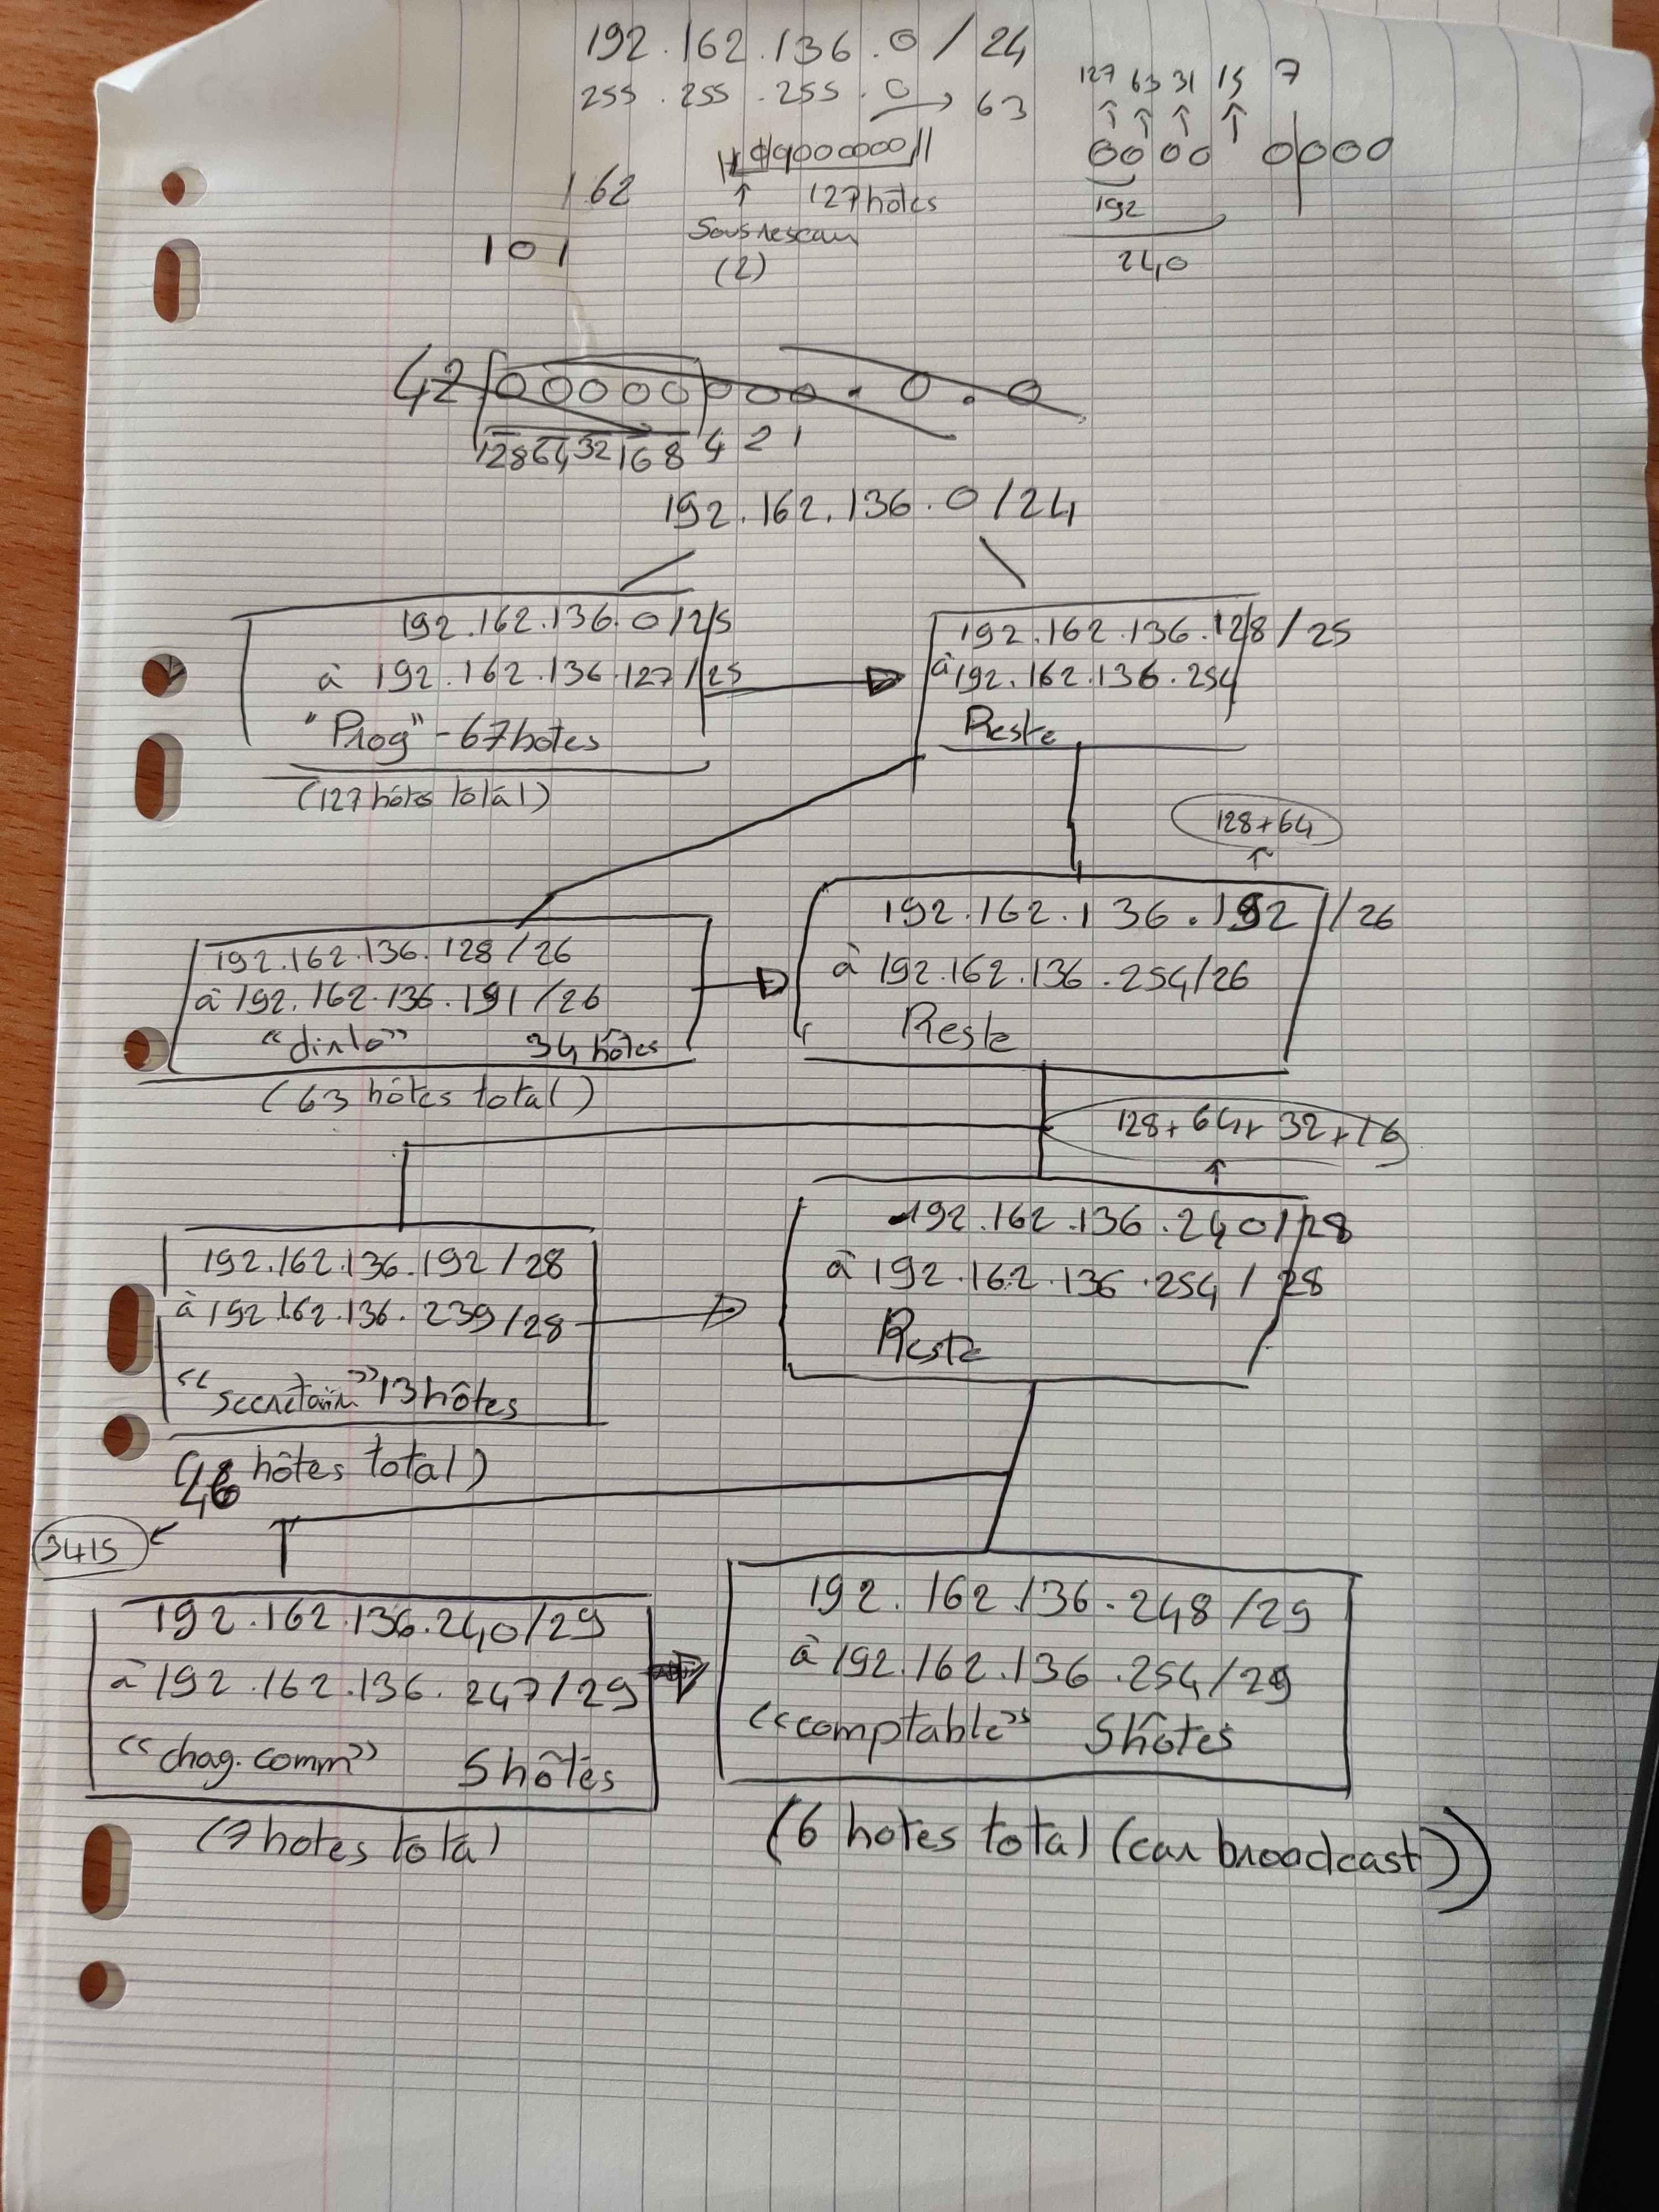 192.162.136.0/24
255.255.255.0 → 63
127 63 31 15 7
0000 0000
192
240
162
127 hôtes
Sous reseau
(2)
101
42 00000000.0.0
128 64 32 16 8 4 2 1
192.162.136.0/24
192.162.136.0/25
à 192.162.136.127/25
"Prog" - 67 hotes
(127 hôtes total)
192.162.136.128/25
à 192.162.136.254
Reste
128+64
192.162.136.128/26
à 192.162.136.191/26
34 hôtes
(63 hôtes total)
192.162.136.192/26
à 192.162.136.254/26
Reste
128+64+32+16
192.162.136.192/28
à 192.162.136.239/28
"secrétair" 13 hôtes
(46 hôtes total)
192.162.136.240/28
à 192.162.136.254/28
Reste
3415
192.162.136.240/29
à 192.162.136.247/29
"chag.comm" 5 hôtes
(7 hotes total)
192.162.136.248/29
à 192.162.136.254/29
"comptable" 5 hôtes
(6 hotes total (car broadcast))